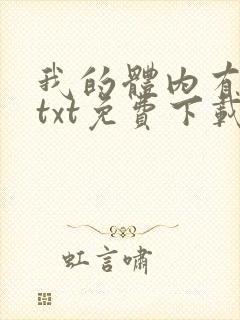 我的體内有
txt免費下載
虹言嘯